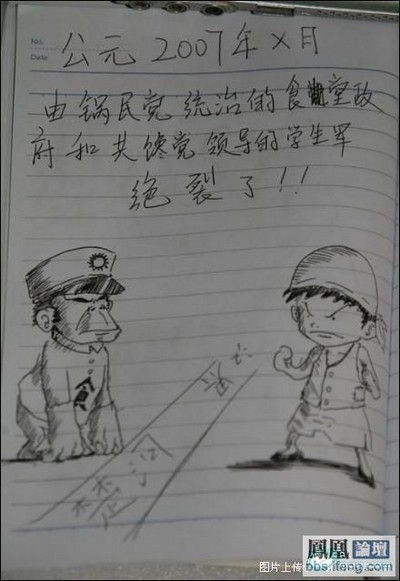 No.
Date
公元 2007年×月
由锅民党统治的食堂政
府和共馋党领导的学生军
绝裂了!!
食
楚河
鳳凰論壇
图片上传
bbs.ifeng.com